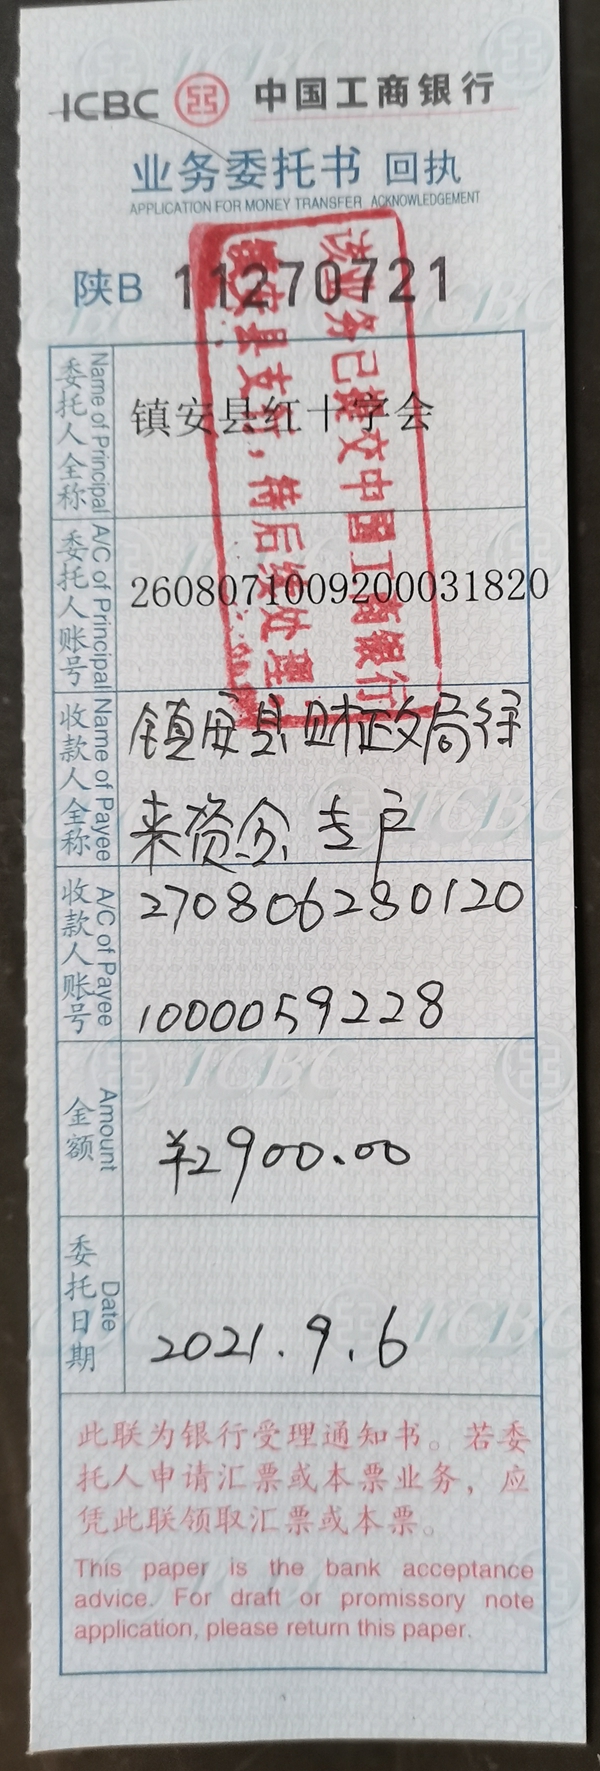 ICBC 中国工商银行
业务委托书 回执
APPLICATION FOR MONEY TRANSFER ACKNOWLEDGEMENT
陕B 11270721
该业务已提交中国工商银行
镇安县支行，待后续处理
委托人全称 Name of Principal
镇安县红十字会
委托人账号 A/C of Principal
2608071009200031820
收款人全称 Name of Payee
镇安县财政局往
来资金专户
收款人账号 A/C of Payee
270806280120
1000059228
金额 Amount
¥2900.00
委托日期 Date
2021.9.6
此联为银行受理通知书。若委
托人申请汇票或本票业务，应
凭此联领取汇票或本票。
This paper is the bank acceptance
advice. For draft or promissory note
application, please return this paper.